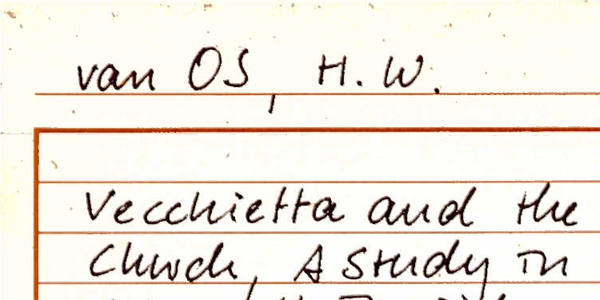 van OS, H.W.
Vecchietta and the
Church, A Study in